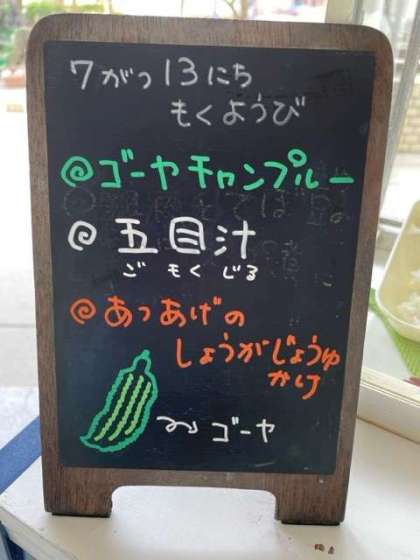 7がつ13にち
もくようび
@ゴーヤチャンプルー
@五目汁
ごもくじる
@あつあげの
しょうがじょうゆ
かけ
ゴーヤ